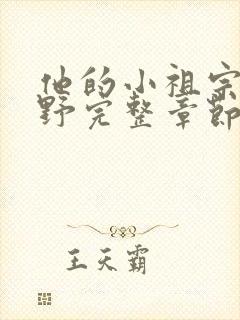 他的小祖宗
野完整章節
王天霸